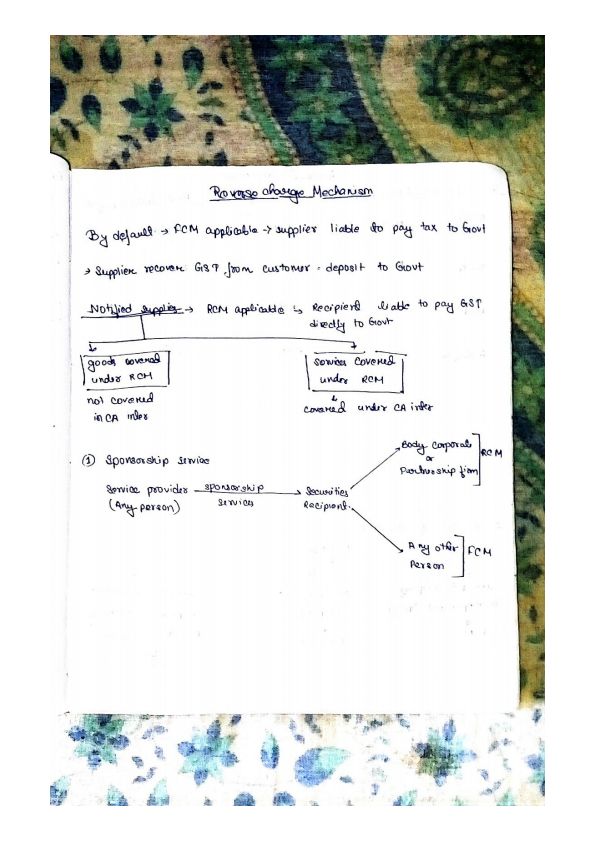 Reverse charge Mechanism
By default → FCM applicable → supplier liable to pay tax to Govt
→ Supplier recover GST from customer - deposit to Govt
Notified supplies → RCM applicable ↳ Recipient liable to pay GST
directly to Govt
goods covered
under RCM
not covered
in CA inter
services covered
under RCM
covered under CA inter
① Sponsorship service
Service provider
(Any person)
sponsorship
services
Securities
Recipient
Body corporate
or
Partnership firm
RCM
Any other
Person
FCM